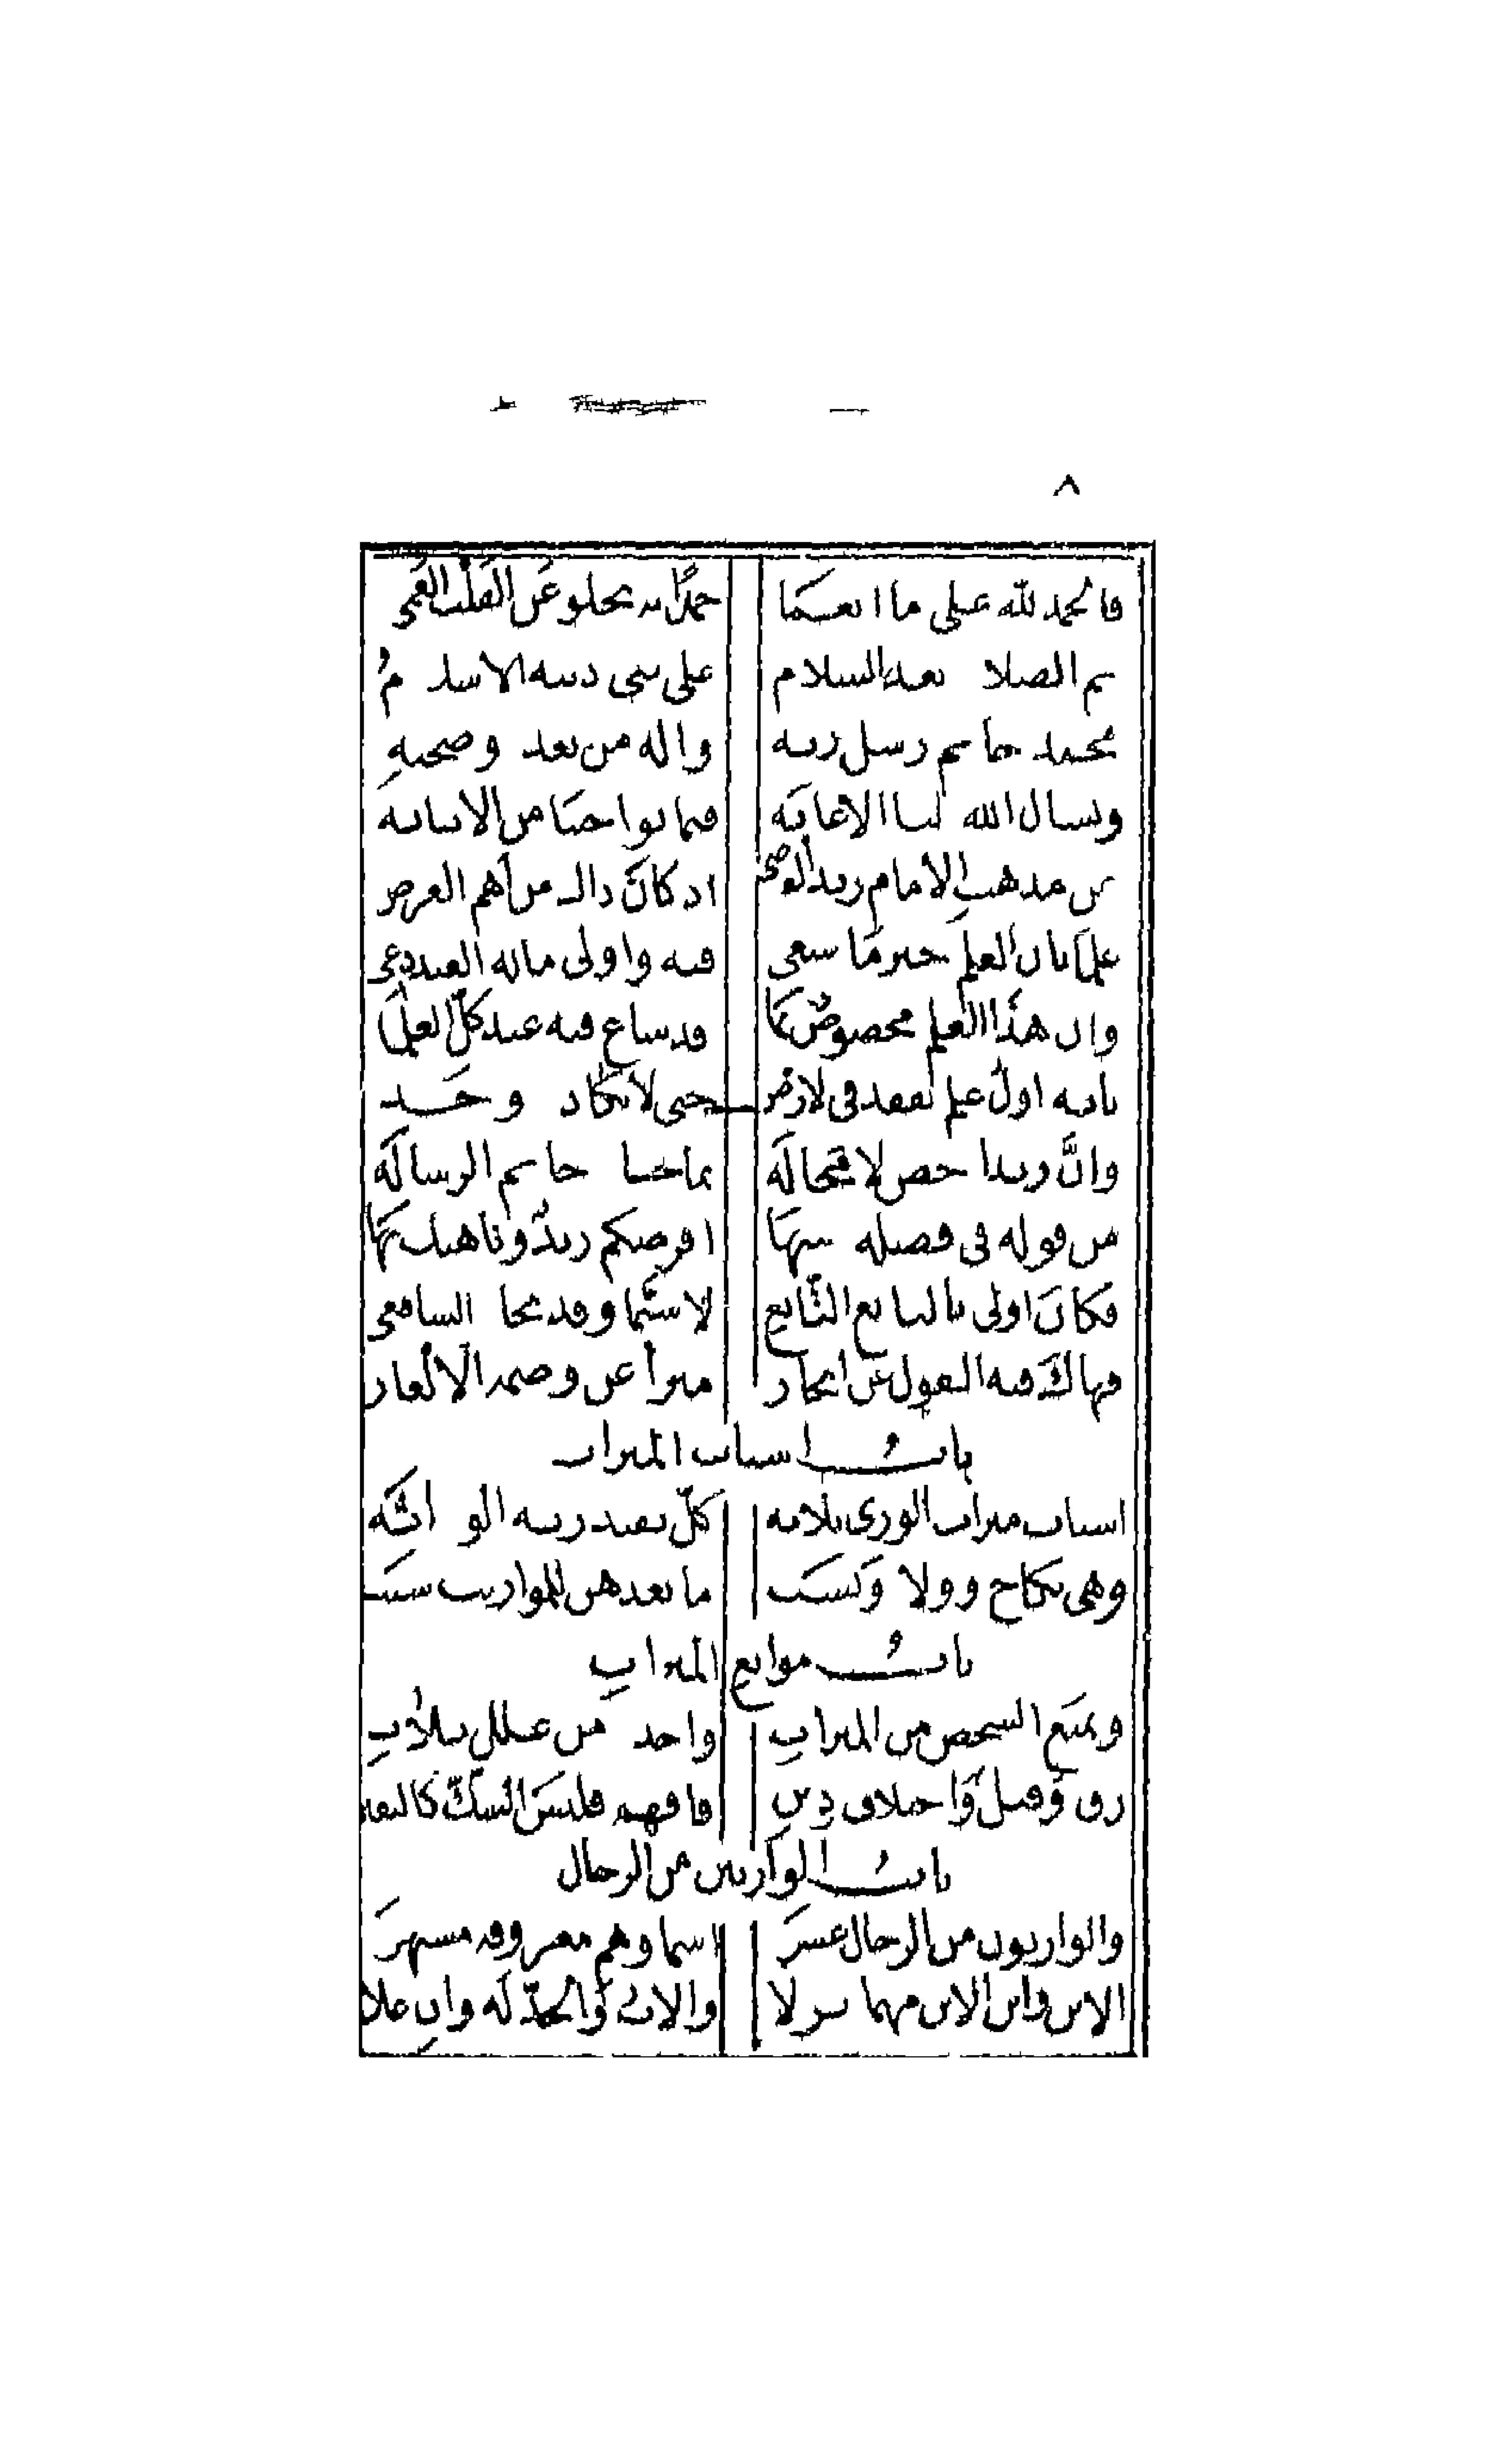 ٨
فالحمد لله على ما انعما حمدا به يجلو عن القلب العمى
ثم الصلاة بعد والسلام على نبي دينه الاسلام
محمد خاتم رسل ربه واله من بعده وصحبه
ونسال الله لنا الاعانه فيما توخينا من الابانه
عن مذهب الامام زيد الفرضي اذ كان ذاك من أهم الغرض
علما بان العلم خير ما سعي فيه واولى ماله العبد دعي
وان هذا العلم مخصوص بما قد شاع فيه عند كل العلما
بانه اول علم يفقد في الارض حتى لا يكاد يوجد
وانَّ زيدا خص لا محاله بما حباه خاتم الرساله
من قوله في فضله منبها افرضكم زيد وناهيك بها
فكان اولى باتباع التابع لا سيما وقد نحا الشافعي
فهاك فيه القول عن ايجاز مبرأ عن وصمة الالغاز
باب اسباب الميراث
اسباب ميراث الورى ثلاثه كلّ يفيد ربه الوراثه
وهي نكاح وولا ونسب ما بعدهن للمواريث سبب
باب موانع الميراث
ويمنع الشخص من الميراث واحدة من علل ثلاث
رق وقتل واختلاف دين فافهم فليس الشك كاليقين
باب الوارثين من الرجال
والوارثون من الرجال عشره اسماؤهم معروفة مشتهره
الابن وابن الابن مهما نزلا والاب والجد له وان علا